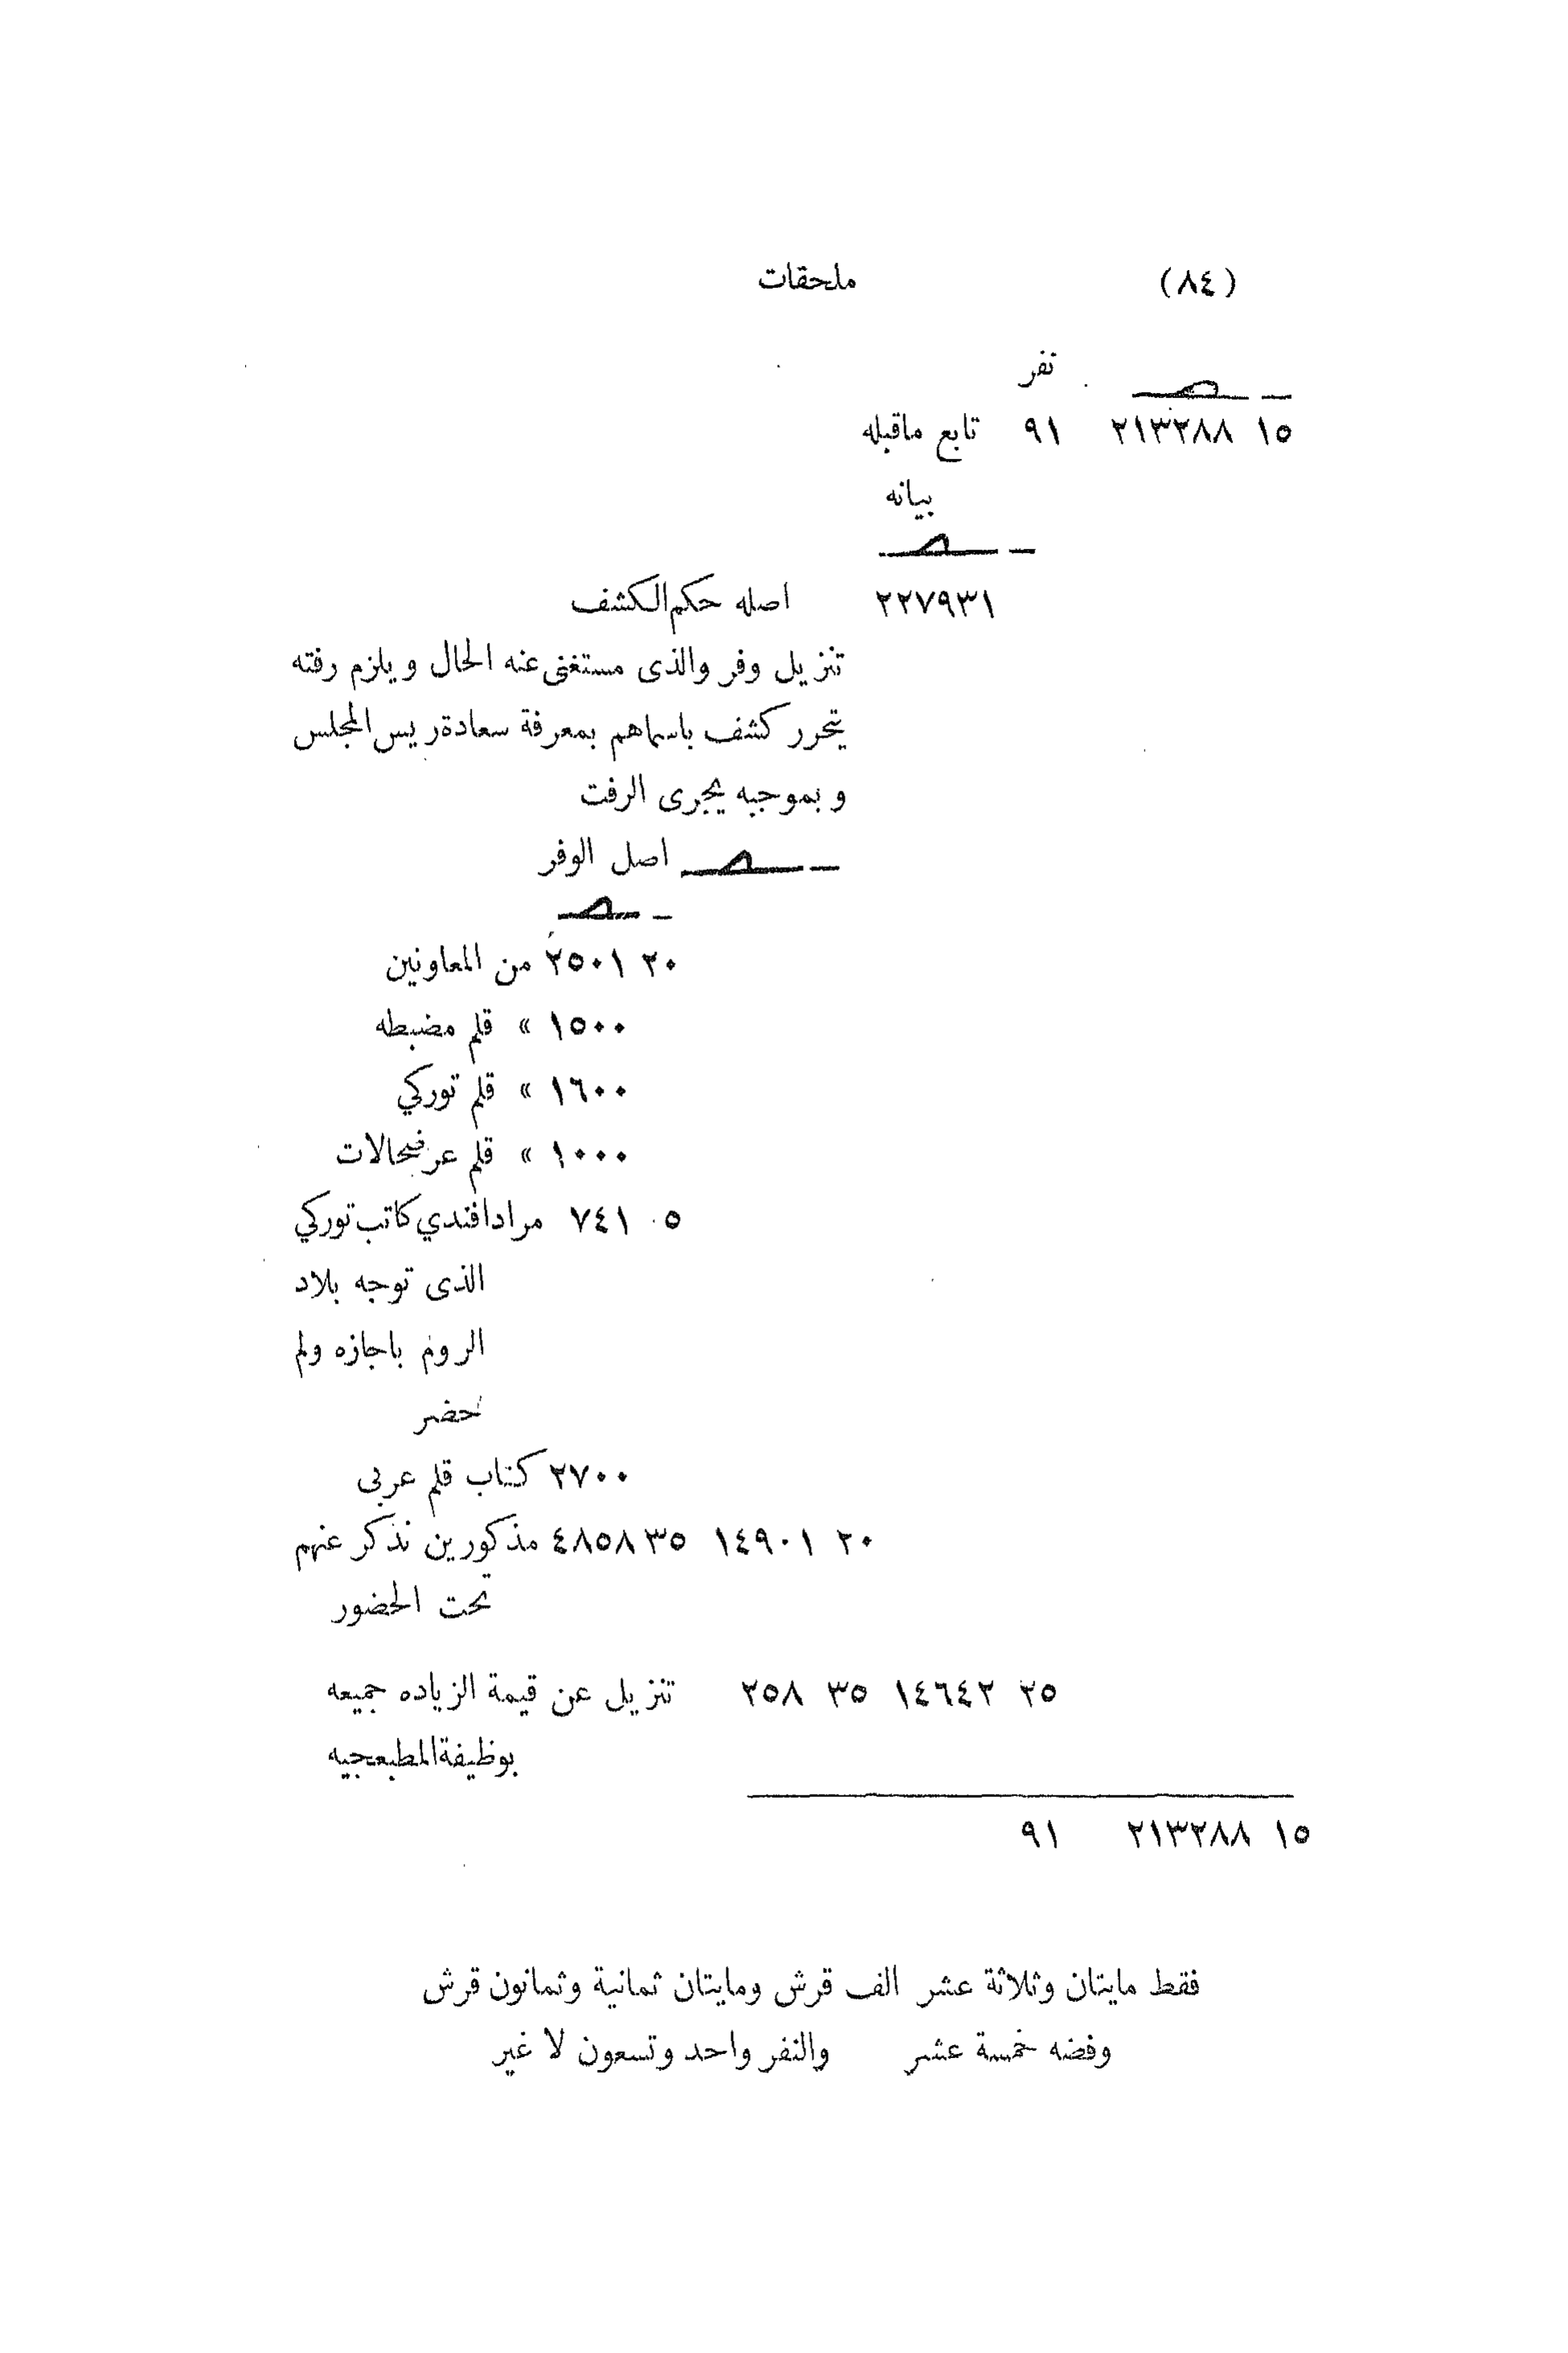 (٨٤) ملحقات
نفر
١٥ ٢١٣٢٨٨ ٩١ تابع ماقبله
بيانه
٢٢٧٩٣١ اصله حكم الكشف
تنزيل وفر والذى مستغنى عنه الحال ويلزم رفته
يتحرر كشف باسماهم بمعرفة سعادة ريس المجلس
وبموجبه يجرى الرفت
اصل الوفر
٢٠ ٢٥٠١ من المعاونين
١٥٠٠ » قلم مضبطه
١٦٠٠ » قلم توركي
١٠٠٠ » قلم عرضحالات
٥ ٧٤١ مراد افندي كاتب توركي
الذى توجه بلاد
الروم باجازه ولم
حضر
٢٧٠٠ كتاب قلم عربى
٢٠ ١٤٩٠١ ٣٥ ٤٨٥٨ مذكورين نذكر عنهم
تحت الحضور
٢٥ ١٤٦٤٢ ٣٥ ٢٥٨ تنزيل عن قيمة الزياده جميعه
بوظيفة المطبعجيه
١٥ ٢١٣٢٨٨ ٩١
فقط مايتان وثلاثة عشر الف قرش ومايتان ثمانية وثمانون قرش
وفضه خمسة عشر والنفر واحد وتسعون لا غير